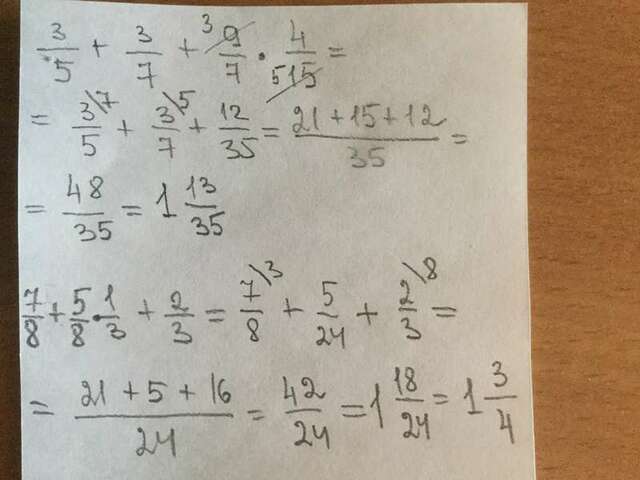 3/5 + 3/7 + ³9/7 · 4/₅15 =
= 3/5 ⁄7 + 3/7 ⁄5 + 12/35 = (21 + 15 + 12)/35 =
= 48/35 = 1 13/35
7/8 + 5/8 · 1/3 + 2/3 = 7/8 ⁄3 + 5/24 + 2/3 ⁄8 =
= (21 + 5 + 16)/24 = 42/24 = 1 18/24 = 1 3/4